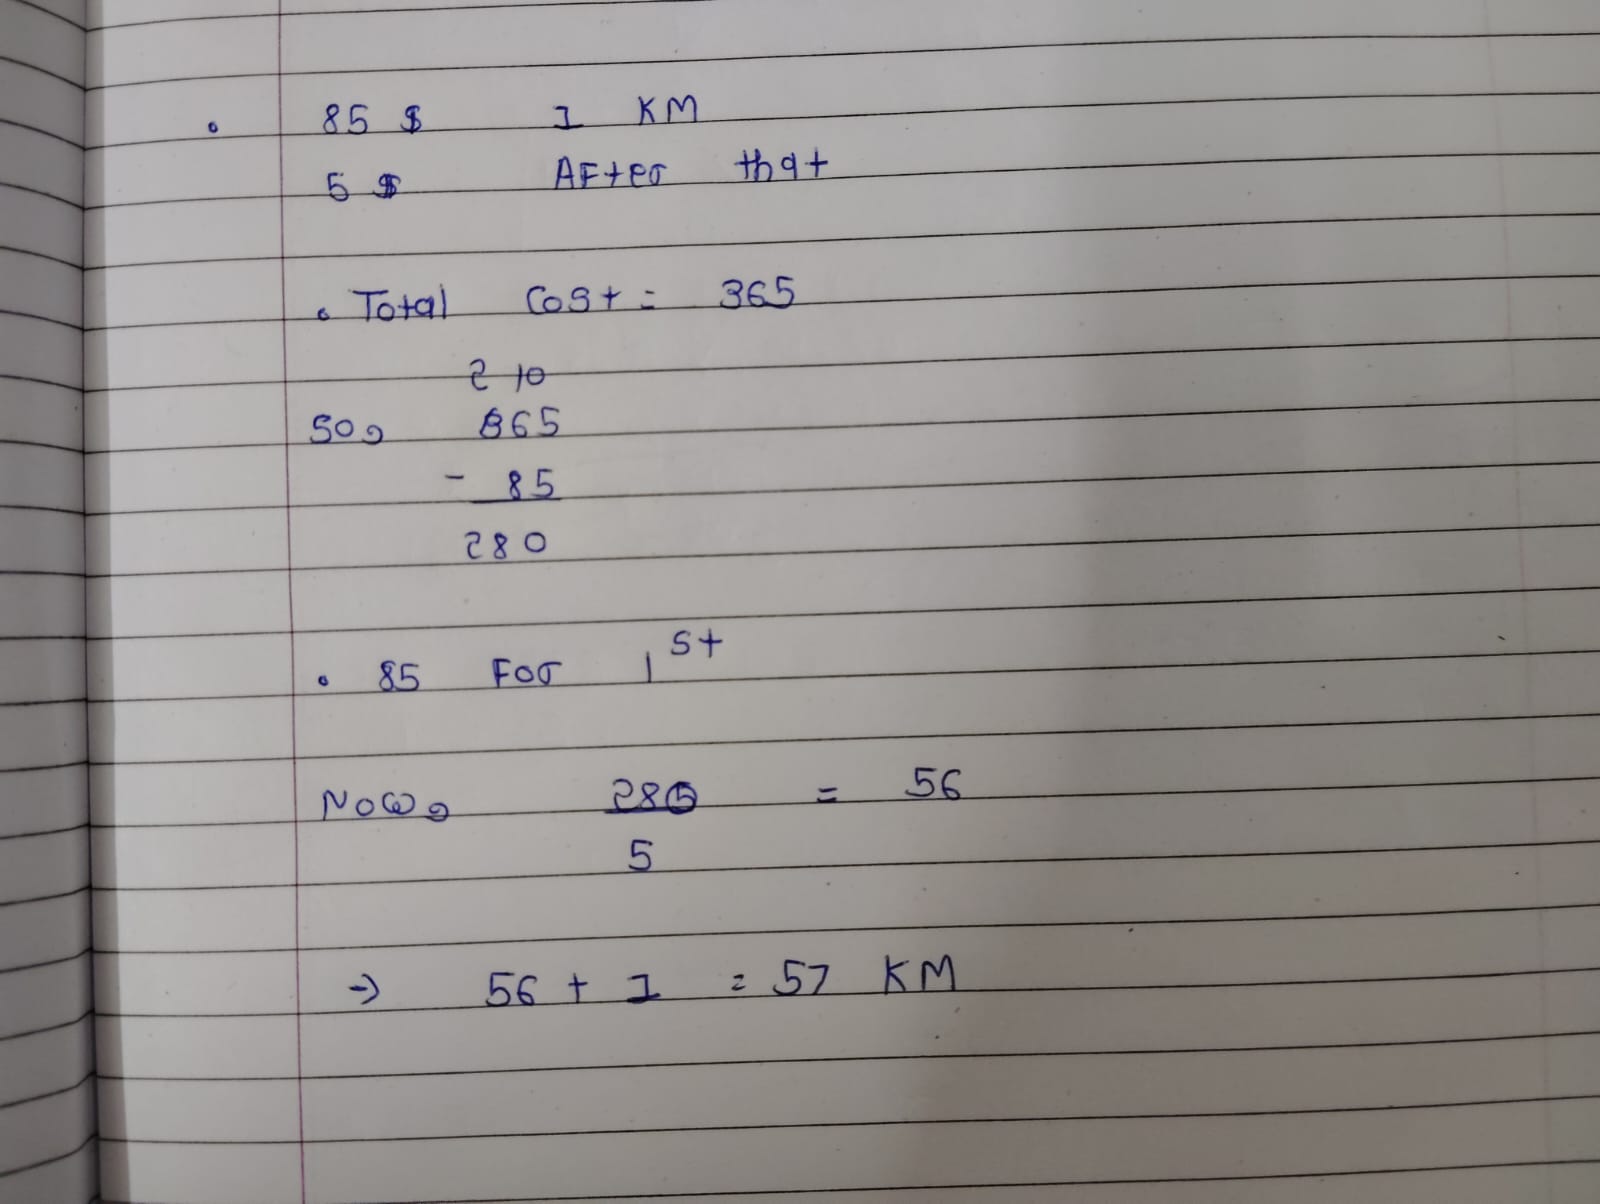 85 $ 1 KM
5 $ After that
Total Cost = 365
2 10
So, 365
- 85
280
85 For 1st
Now, 280 = 56
5
→ 56 + 1 = 57 KM